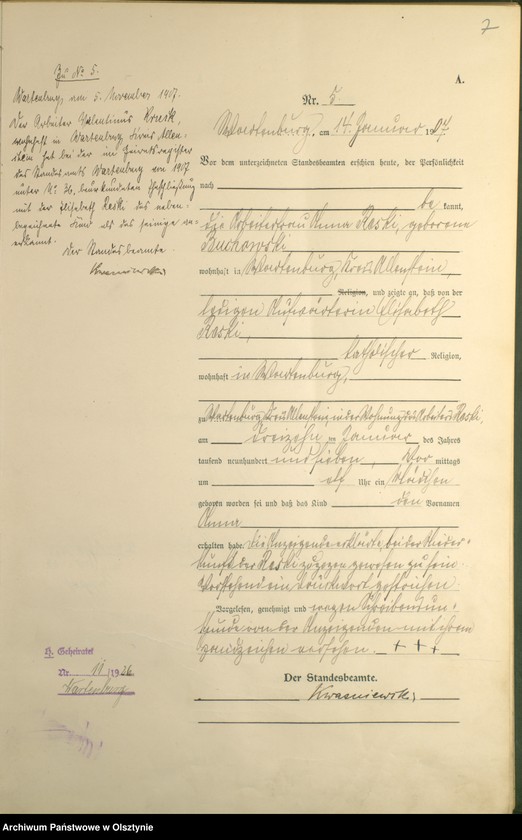 7
Zu No 5.
Wartenburg, am 5. November 1907.
Der Arbeiter Valentinus
wohnhaft in Wartenburg Kreis Allen-
stein hat bei der im Heiratsregister
des Standesamts Wartenburg von 1907
unter No beurkundeten Eheschließung
mit der Elisabeth Raski das neben-
bezeichnete Kind als das seinige an-
erkannt.
Der Standesbeamte.
Krasniewski
A.
Nr. 5.
Wartenburg, am 14. Januar 1907
Vor dem unterzeichneten Standesbeamten erschien heute, der Persönlichkeit
nach
be kannt,
die Arbeiterfrau Anna Raski, geborene
Buchowski
wohnhaft in Wartenburg, Kreis Allenstein,
Religion, und zeigte an, daß von der
ledigen Aufwärterin Elisabeth
Raski,
katholischer Religion,
wohnhaft in Wartenburg,
zu Wartenburg Kreis Allenstein, in der Wohnung des Arbeiters Raski
am dreizehn ten Januar des Jahres
tausend neunhundert und sieben, Vor mittags
um elf Uhr ein Mädchen
geboren worden sei und daß das Kind den Vornamen
Anna
erhalten habe. Die Anzeigende erklärte, bei der Nieder-
kunft der Raski zugegen gewesen zu sein.
Vorstehend ein Druckwort gestrichen.
Vorgelesen, genehmigt und wegen Schreibensun-
kunde von der Anzeigenden mit ihrem
Handzeichen versehen. + + +
Der Standesbeamte.
Krasniewski
Geheiratet
Nr. 11/1926
Wartenburg
Archiwum Państwowe w Olsztynie